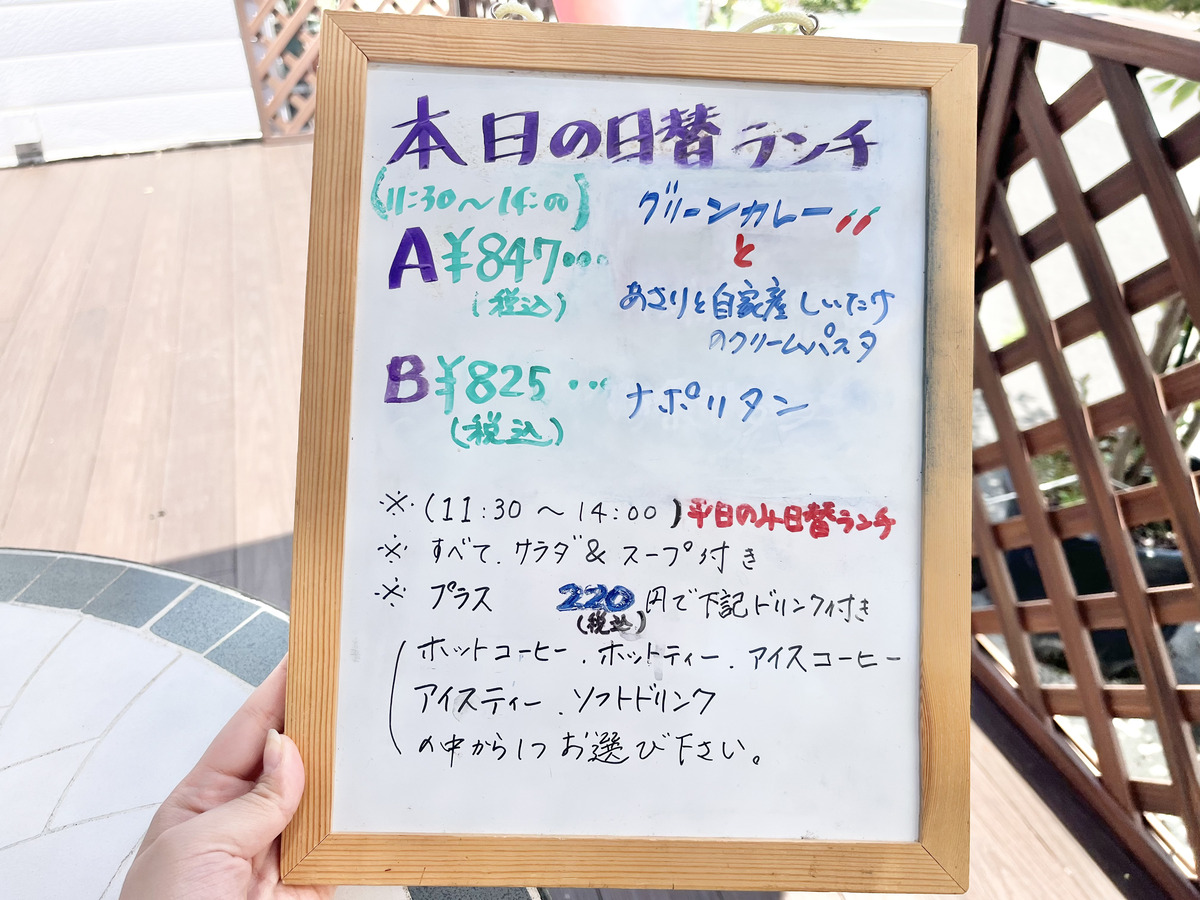 本日の日替ランチ
(11:30～14:00)
グリーンカレー
と
A ¥847…
(税込)
あさりと自家産しいたけ
のクリームパスタ
B ¥825 …
(税込)
ナポリタン
※(11:30～14:00)平日のみ日替ランチ
※ すべて.サラダ&スープ付き
※ プラス 220円で下記ドリンク付き
(税込)
(ホットコーヒー.ホットティー.アイスコーヒー
アイスティー.ソフトドリンク
の中から1つお選び下さい。